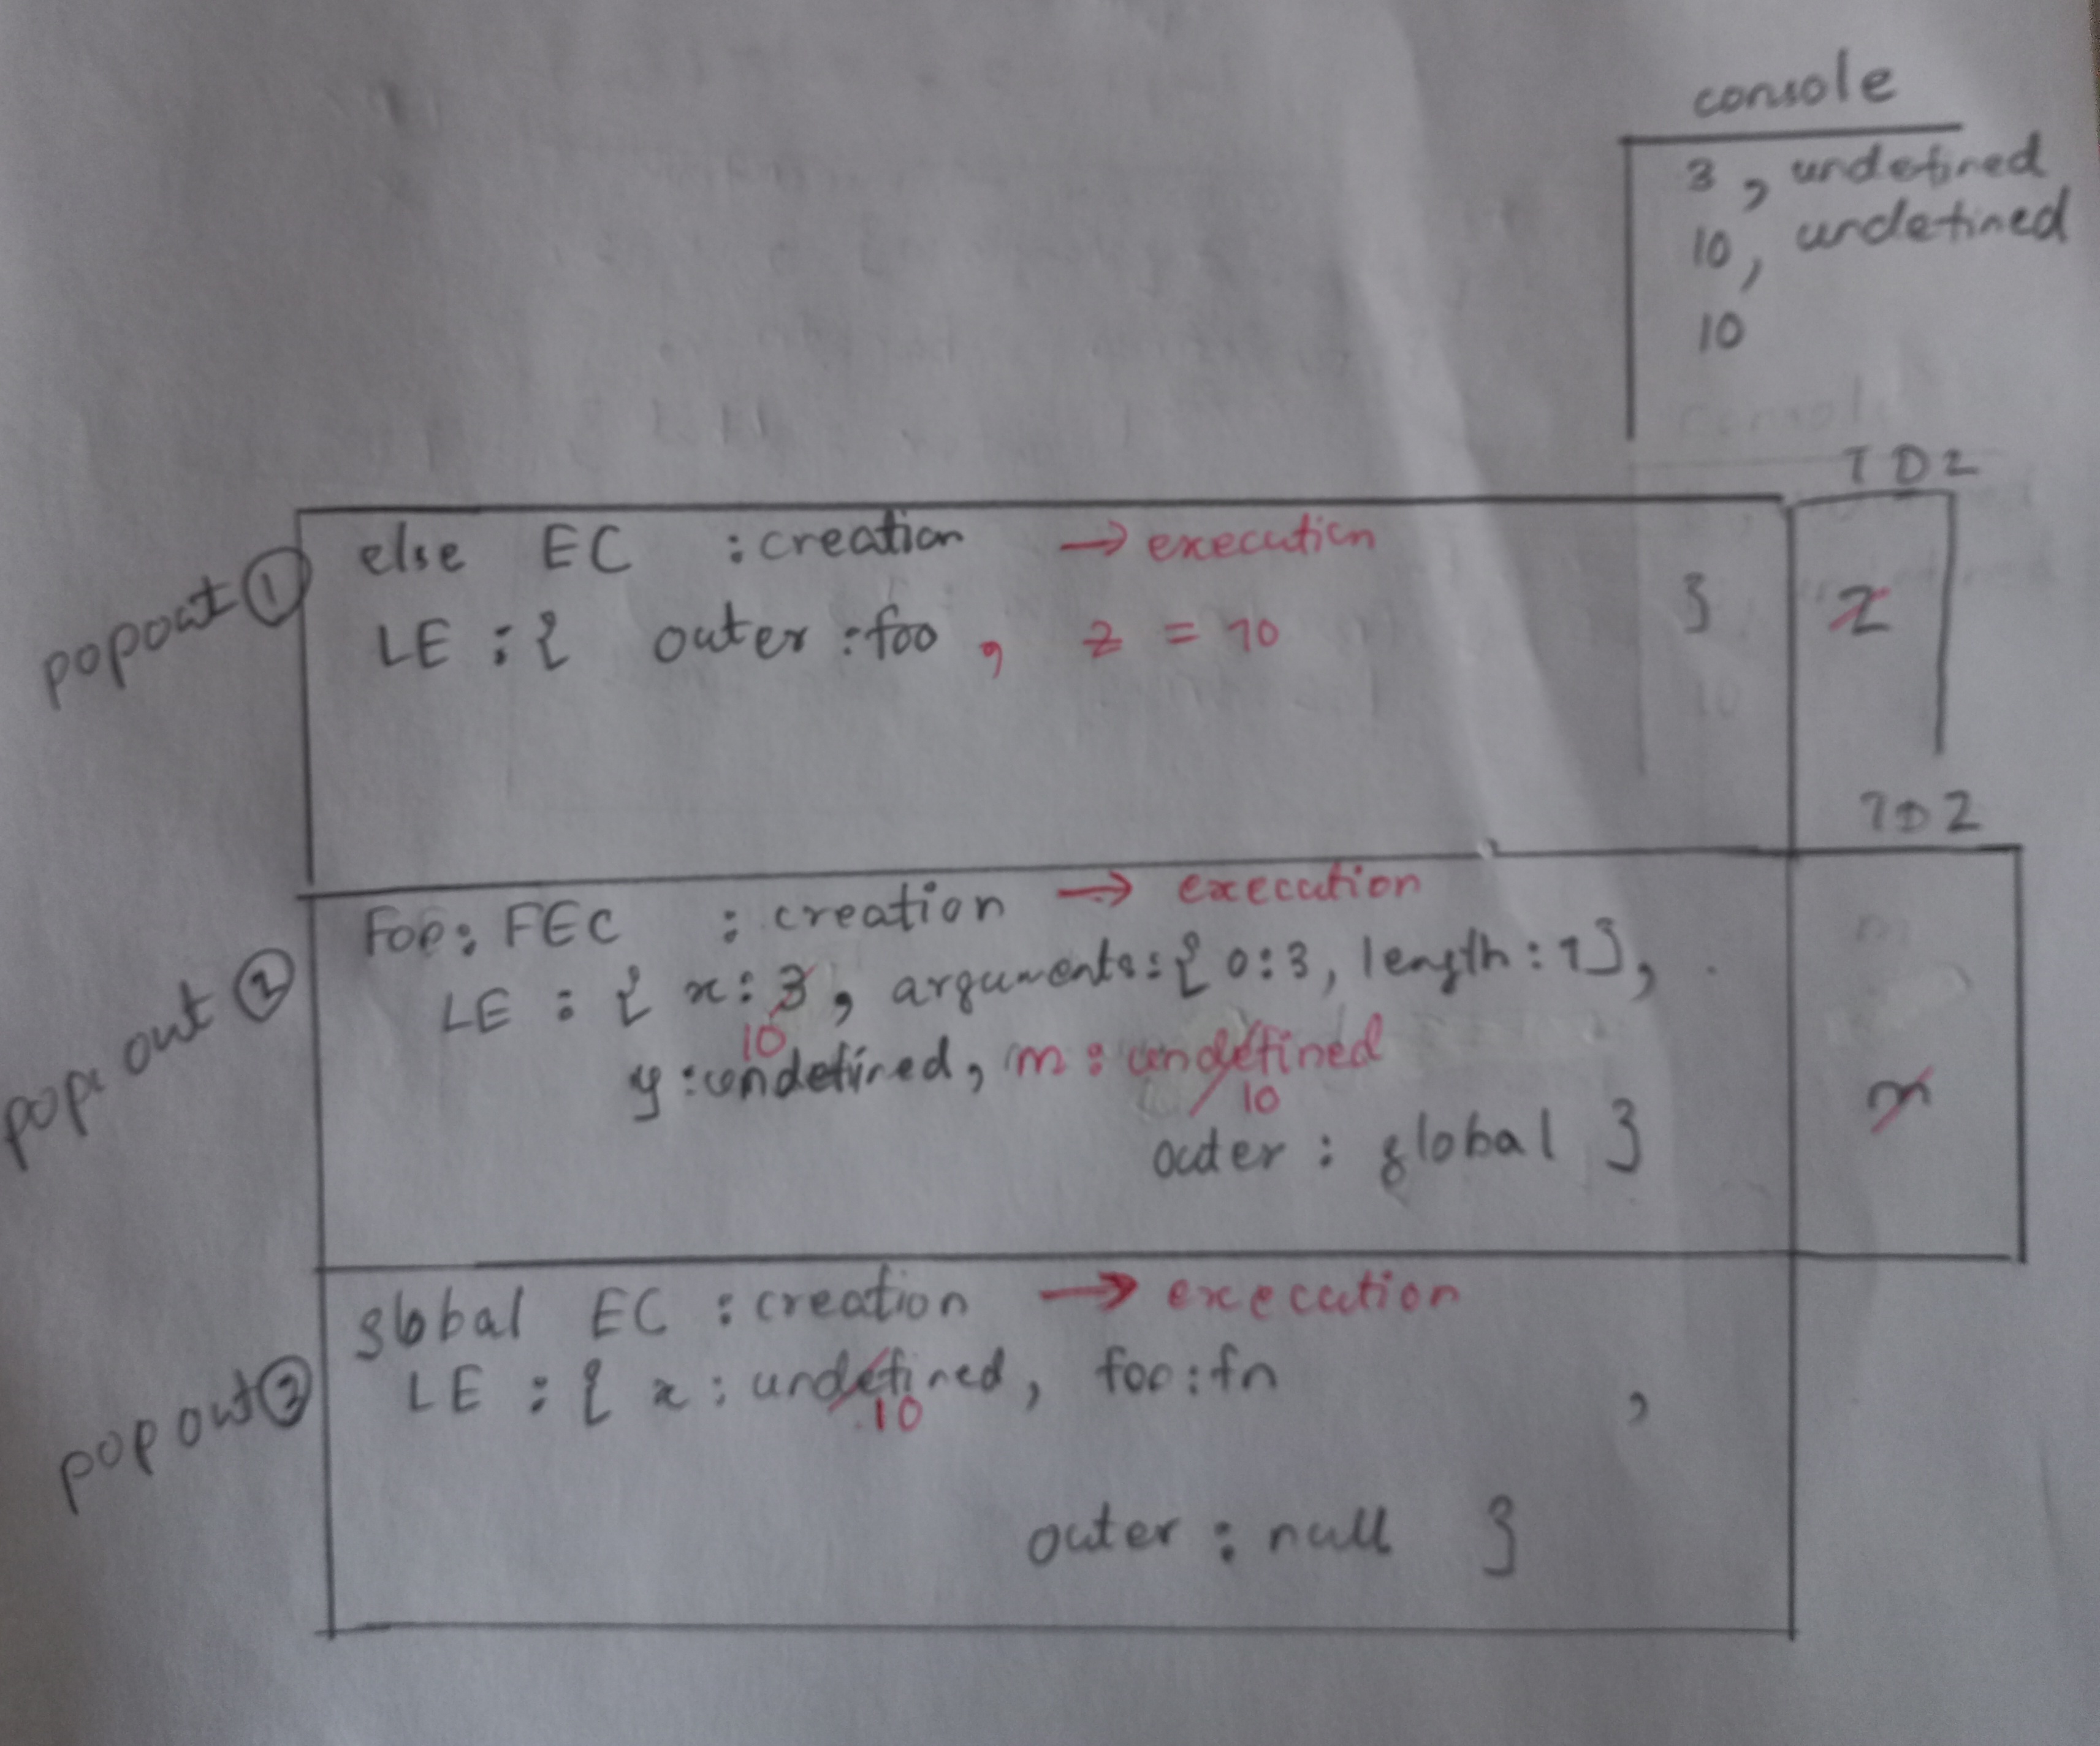 console
3, undefined
10, undefined
10
TDZ
popout ① else EC : creation → execution
LE : { outer : foo , z = 10 }
z
TDZ
pop out ② Foo: FEC : creation → execution
LE : { x : 3, arguments : { 0:3, length : 1},
10
y : undefined, m : undefined
10
m
outer : global }
pop out ③ global EC : creation → execution
LE : { x : undefined, foo : fn ,
10
outer : null }